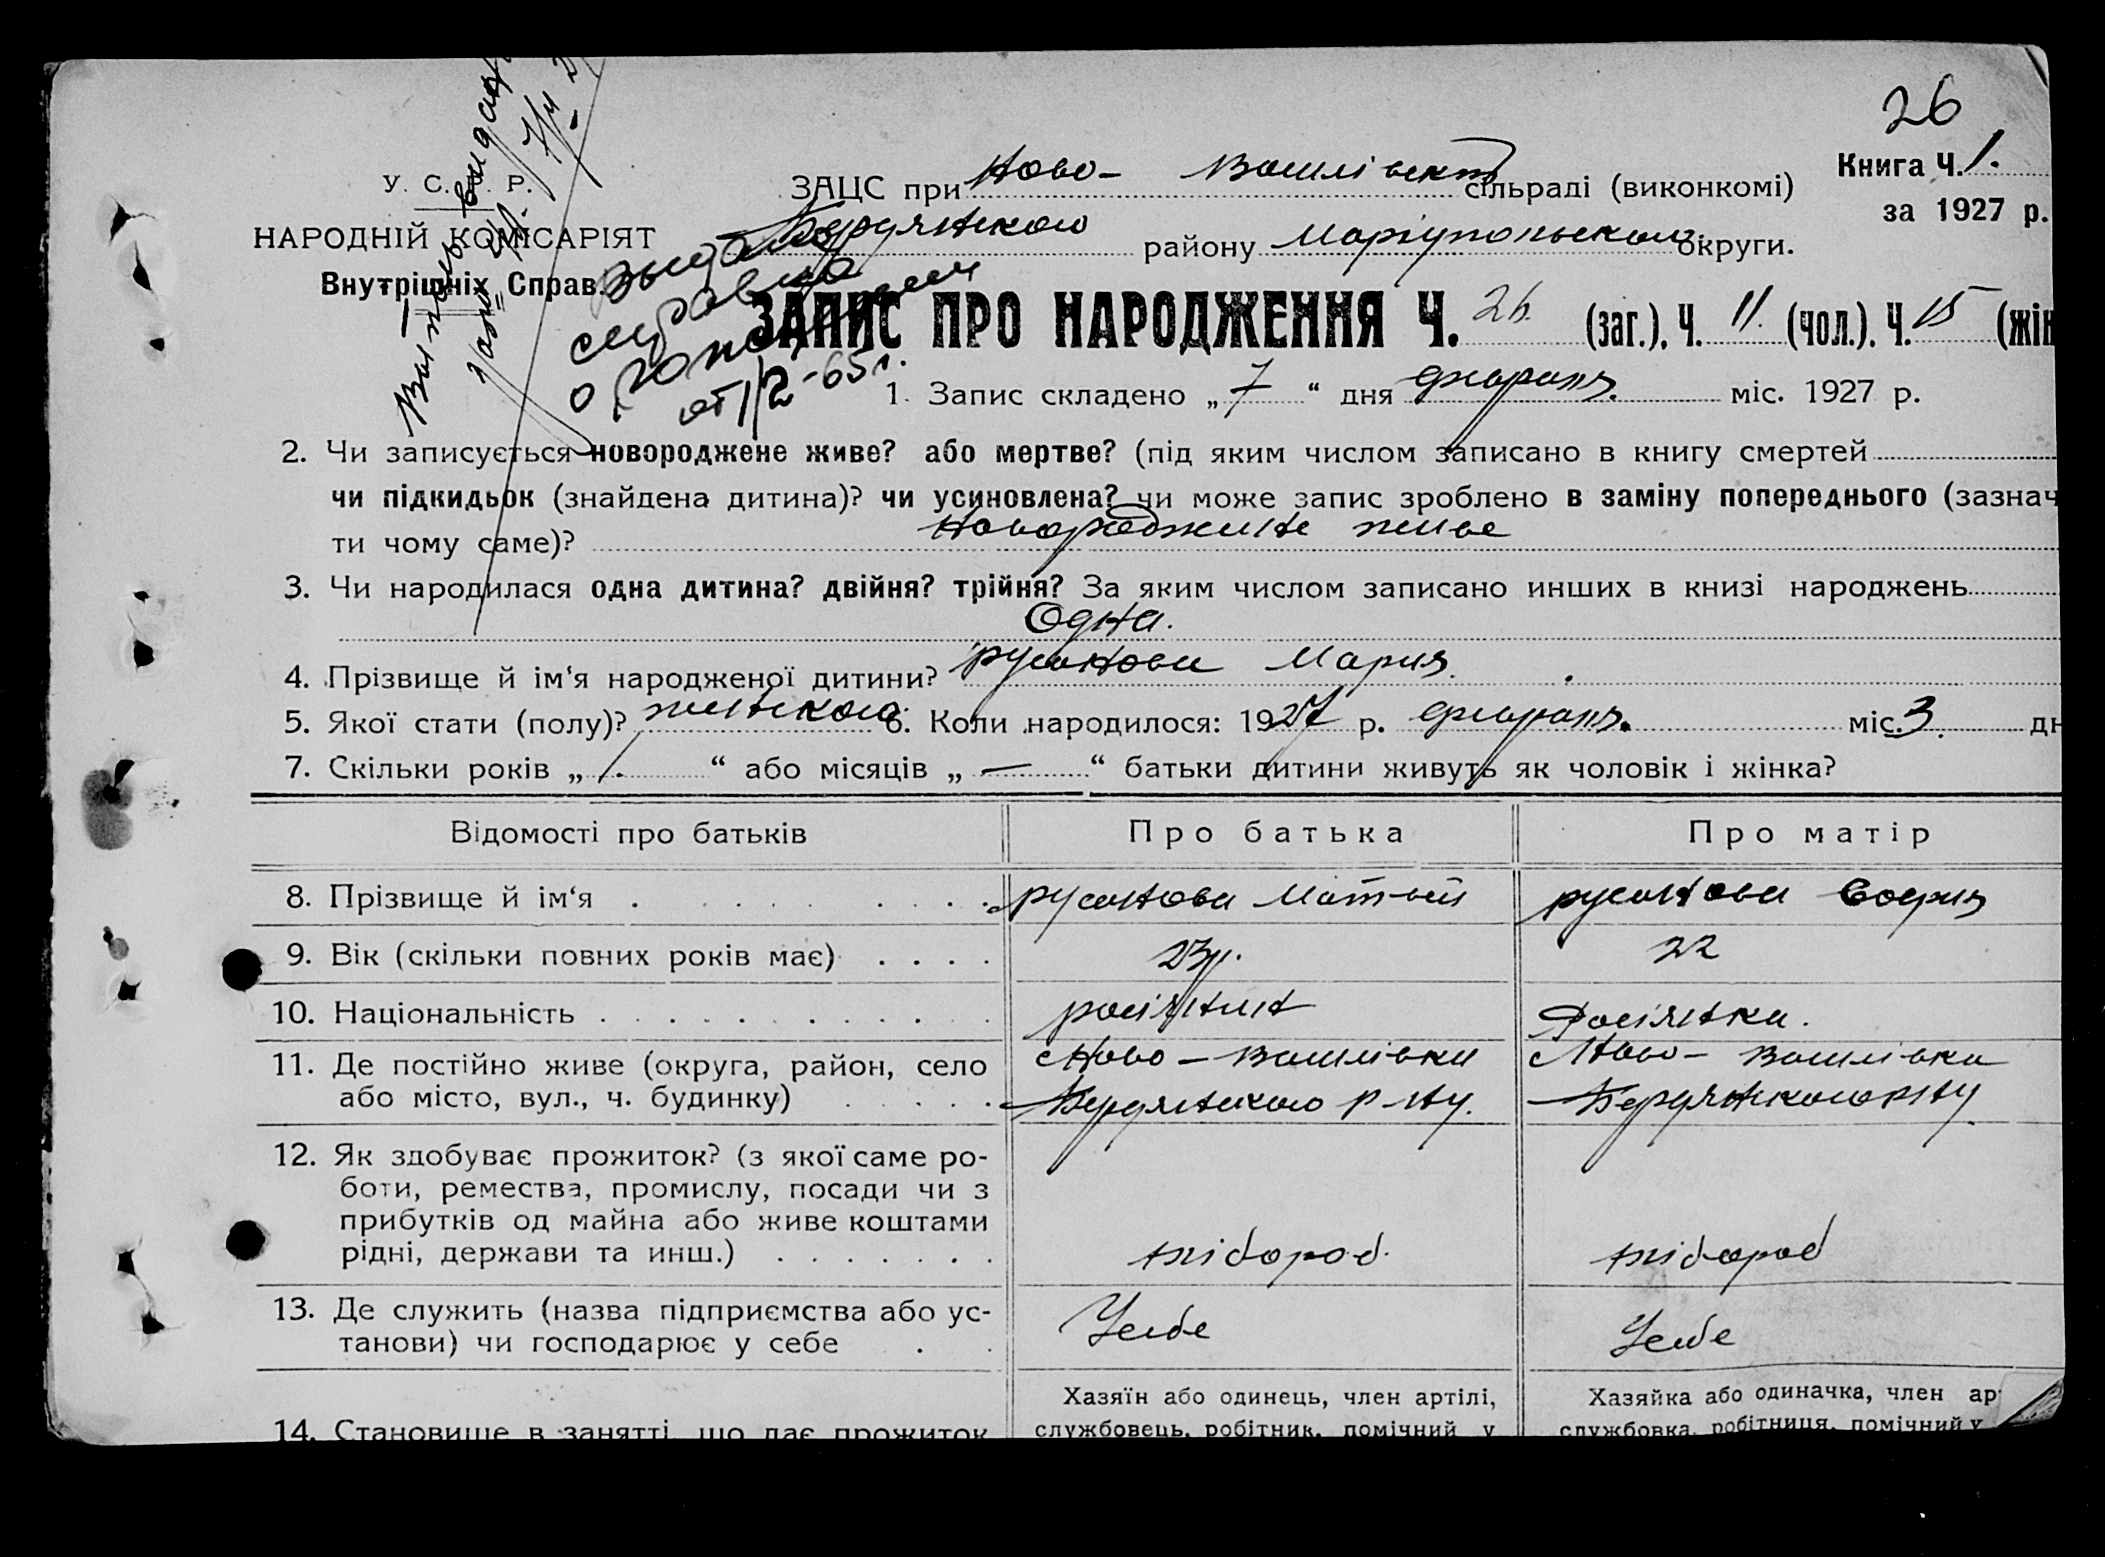 26
Книга Ч. 1.
за 1927 р.
У. С. Р. Р.
НАРОДНІЙ КОМІСАРІЯТ
Внутрішніх Справ.
ЗАЦС при Ново- Василівскій сільраді (виконкомі)
Бердянского району Маріупольской округи.
Выдана
справка
о рождении
от 1/2-65 г.
ЗАПИС ПРО НАРОДЖЕННЯ Ч. 26. (заг.). Ч. 11. (чол.). Ч. 15 (жін
1. Запис складено „ 7 “ дня февраля. міс. 1927 р.
2. Чи записується новороджене живе? або мертве? (під яким числом записано в книгу смертей
чи підкидьок (знайдена дитина)? чи усиновлена? чи може запис зроблено в заміну попереднього (зазнач
ти чому саме)? Новороджене живе
3. Чи народилася одна дитина? двійня? трійня? За яким числом записано инших в книзі народжень
Одна.
4. Прізвище й ім‘я народженої дитини? Русанова Мария.
5. Якої стати (полу)? женского 6. Коли народилося: 1927 р. февраля. міс. 3 дн
7. Скільки років „ 1. “ або місяців „ — “ батьки дитини живуть як чоловік і жінка?
Відомості про батьків Про батька Про матір
8. Прізвище й ім‘я . . . . . . . русанова Матвей русанова София
9. Вік (скільки повних років має) . . . . 23 р. 22
10. Національність . . . . . . . . . росіянин Росіянка.
11. Де постійно живе (округа, район, село Ново-Василівка Ново-Василівка
або місто, вул., ч. будинку) . . . . . Бердянского р-ну. Бердянского р-ну
12. Як здобуває прожиток? (з якої саме ро-
боти, ремества, промислу, посади чи з
прибутків од майна або живе коштами
рідні, держави та инш.) . . . . . . . хлібороб. хлібороб
13. Де служить (назва підприємства або ус- У себе У себе
танови) чи господарює у себе . .
Хазяїн або одинець, член артілі, Хазяйка або одиначка, член ар
14. Становище в занятті, що дає прожиток службовець, робітник, помічний у службовка, робітниця, помічний у